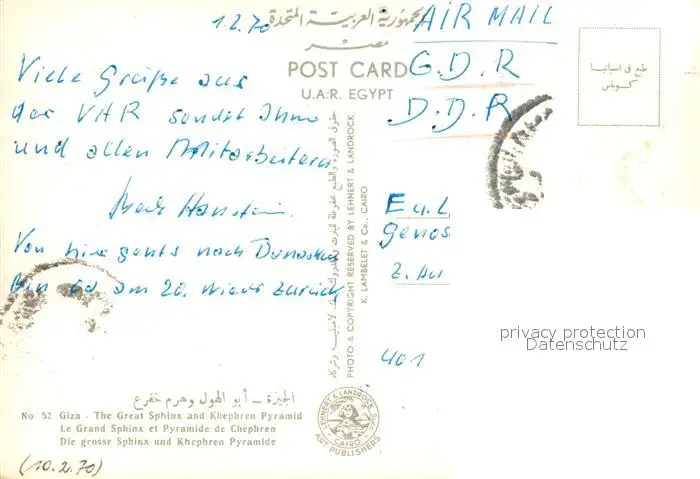 1.2.70
الجمهورية العربية المتحدة
مصر
POST CARD
U.A.R. EGYPT
AIR MAIL
G.D.R
D.D.R
طبع في اسبانيا
Viele Grüße aus
der VAR sendet Ihnen
und allen Mitarbeitern
Von hier gehts nach Damaskus
Bin ca am 20. wieder zurück
PHOTO & COPYRIGHT RESERVED BY LEHNERT & LANDROCK,
K. LAMBELET & Co., CAIRO
E u. L
Genos
401
privacy protection
Datenschutz
الجيزة - أبو الهول وهرم خفرع
No 52 Giza - The Great Sphinx and Khephren Pyramid
Le Grand Sphinx et Pyramide de Chéphren
Die grosse Sphinx und Khephren Pyramide
LEHNERT & LANDROCK
CAIRO
ART PUBLISHERS
(10.2.70)